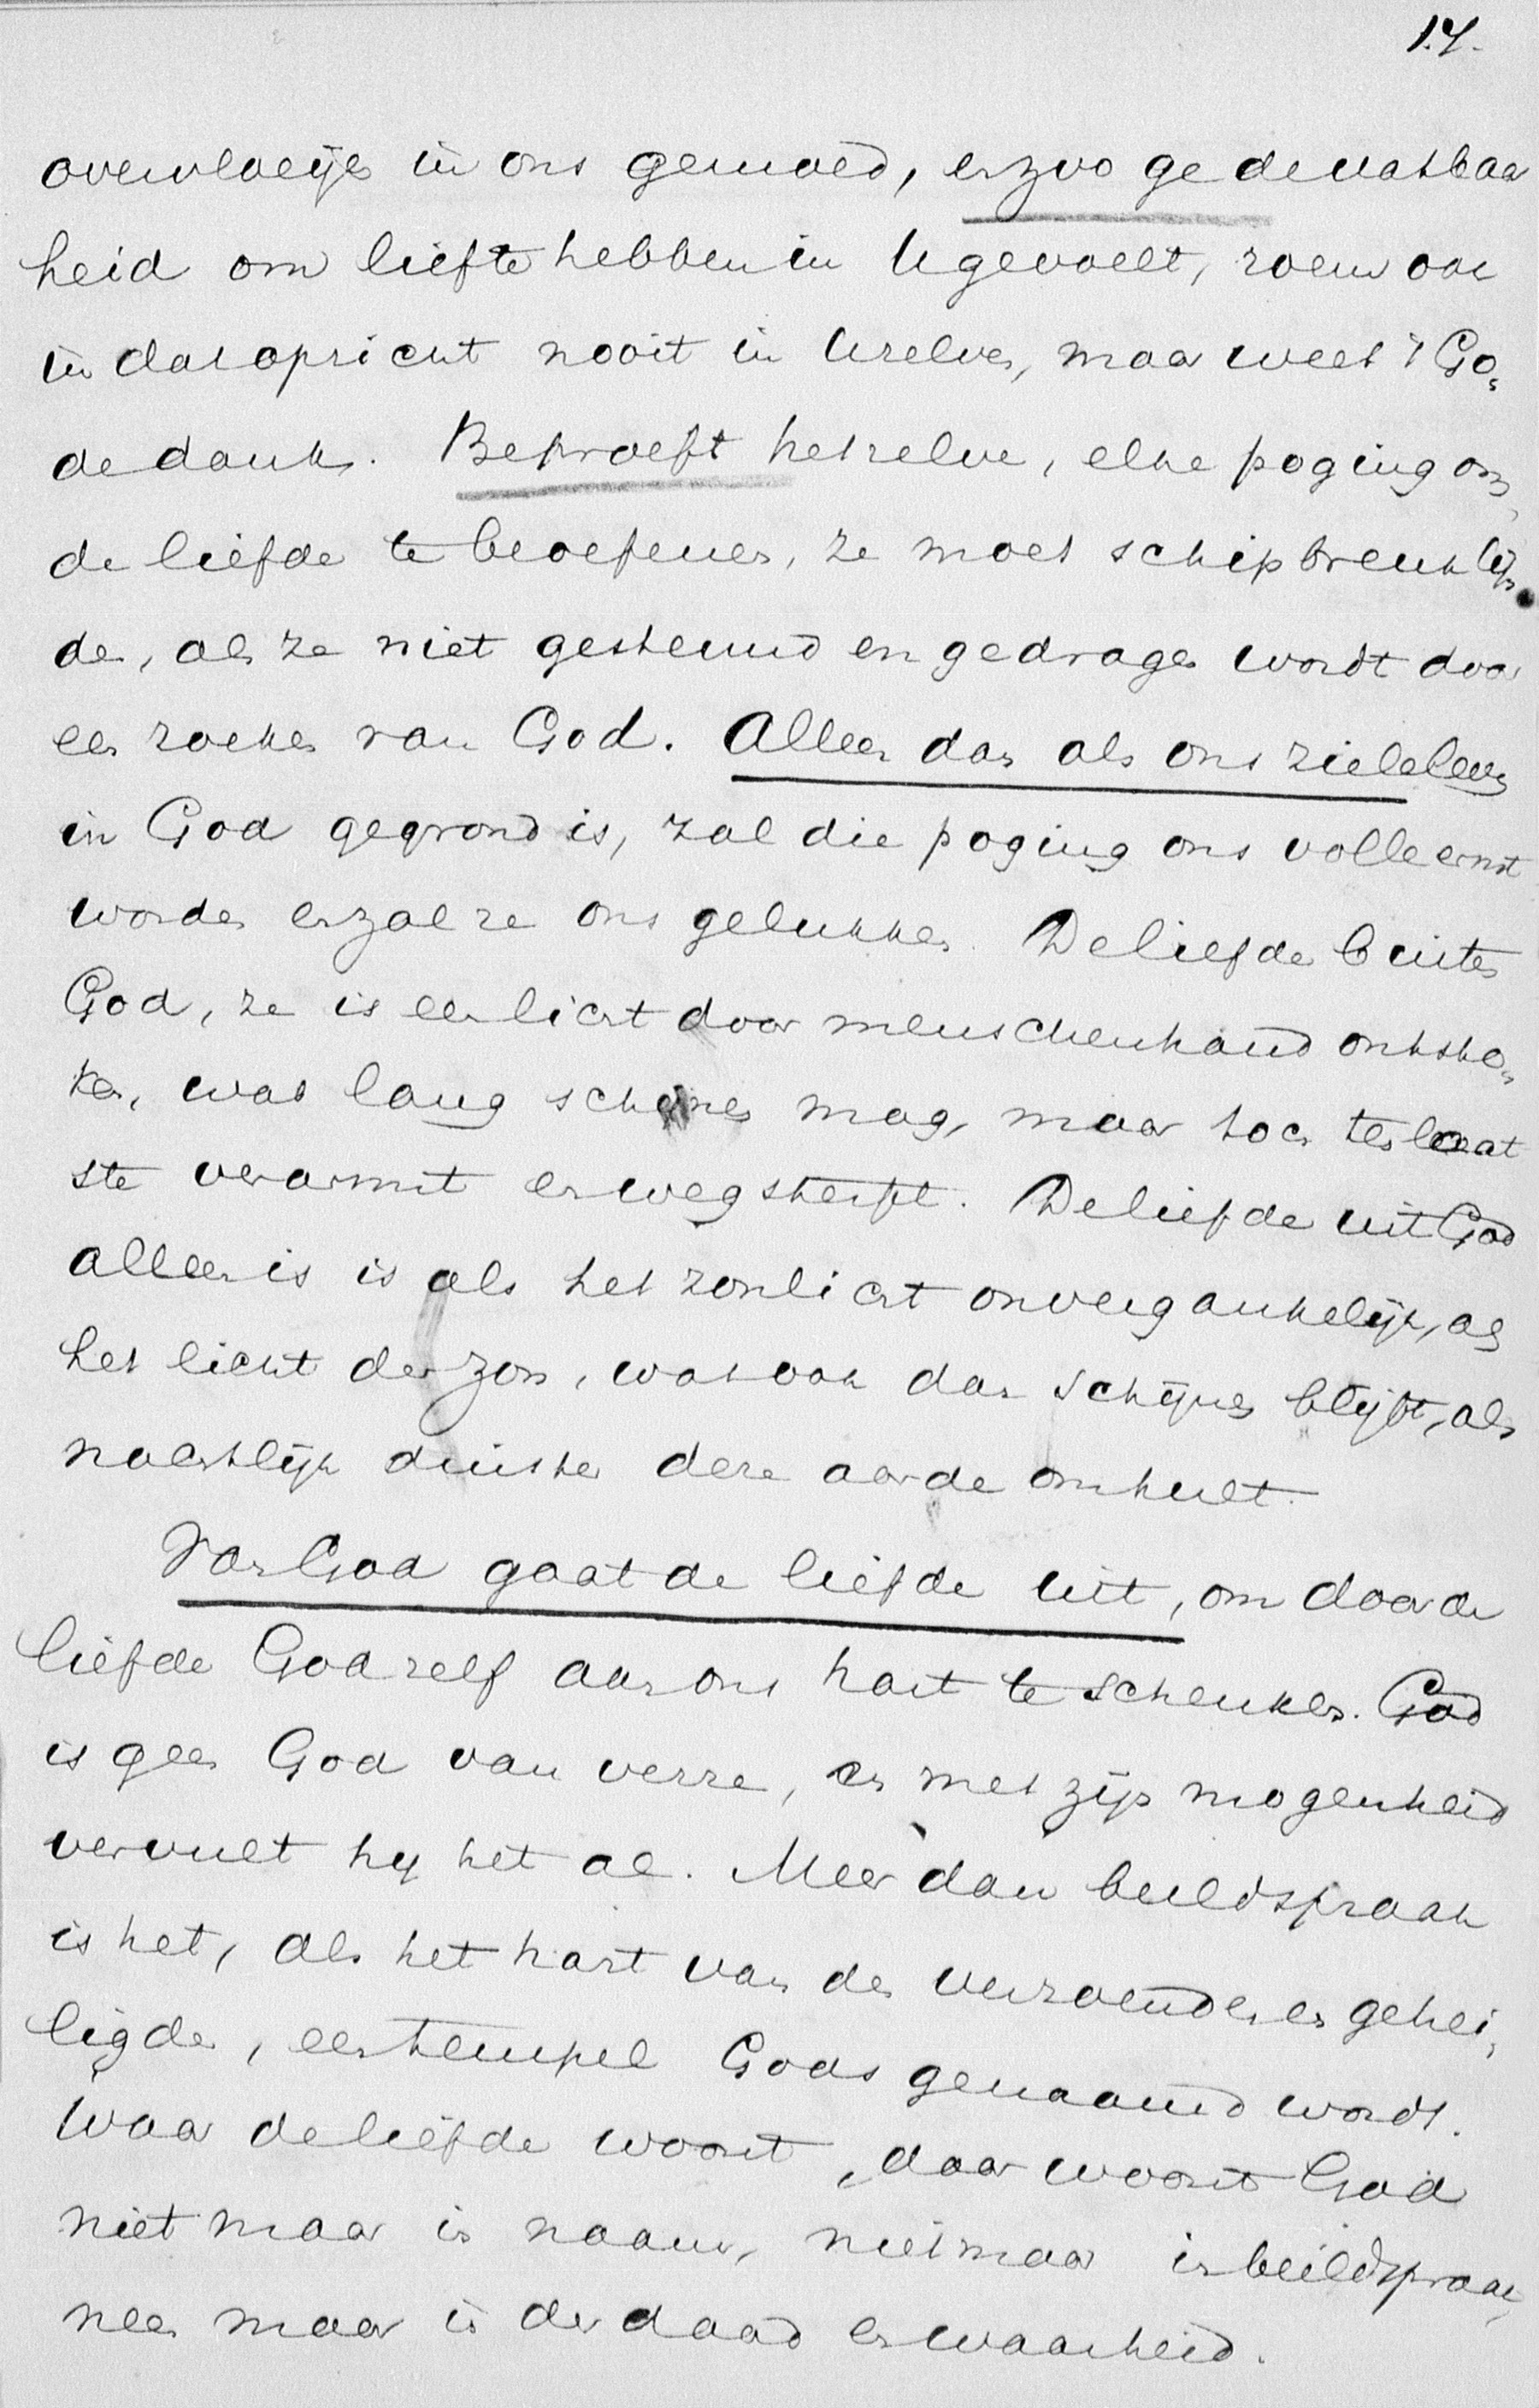 17.
overvloeijen in ons gemoed, en zoo ge de vatbaar
heid om lief te hebben in U gevoelt, roem ook
in dat opzicht nooit in Uzelven, maar weet 't Go-
de dank. Beproeft hetzelve, elke poging om
de liefde te beoefenen, ze moet schipbreuk lij-
den, als ze niet gesteund en gedragen wordt door
een zoeken van God. Alleen dan als ons zieleleven
in God gegrond is, zal die poging ons volle ernst
worden en zal ze ons gelukken. De liefde buiten
God, ze is een licht door menschenhand ontsto-
ken, wat lang schijnen mag, maar toch ten laat
ste verarmt en wegsterft. De liefde uit God
alleen is is als het zonlicht onvergankelijk, als
het licht der zon, wat ook dan schijnen blijft, als
nachtlijk duister deze aarde omhult.
Van God gaat de liefde uit, om door de
liefde God zelf aan ons hart te schenken. God
is geen God van verre, en met zijn mogenheid
vervult hij het al. Meer dan beeldspraak
is het, als het hart van den verzoende en gehei-
ligden, een tempel Gods genaamd wordt.
Waar de liefde woont, daar woont God
niet maar in naam, niet maar in beeldspraak,
neen maar in der daad en waarheid.